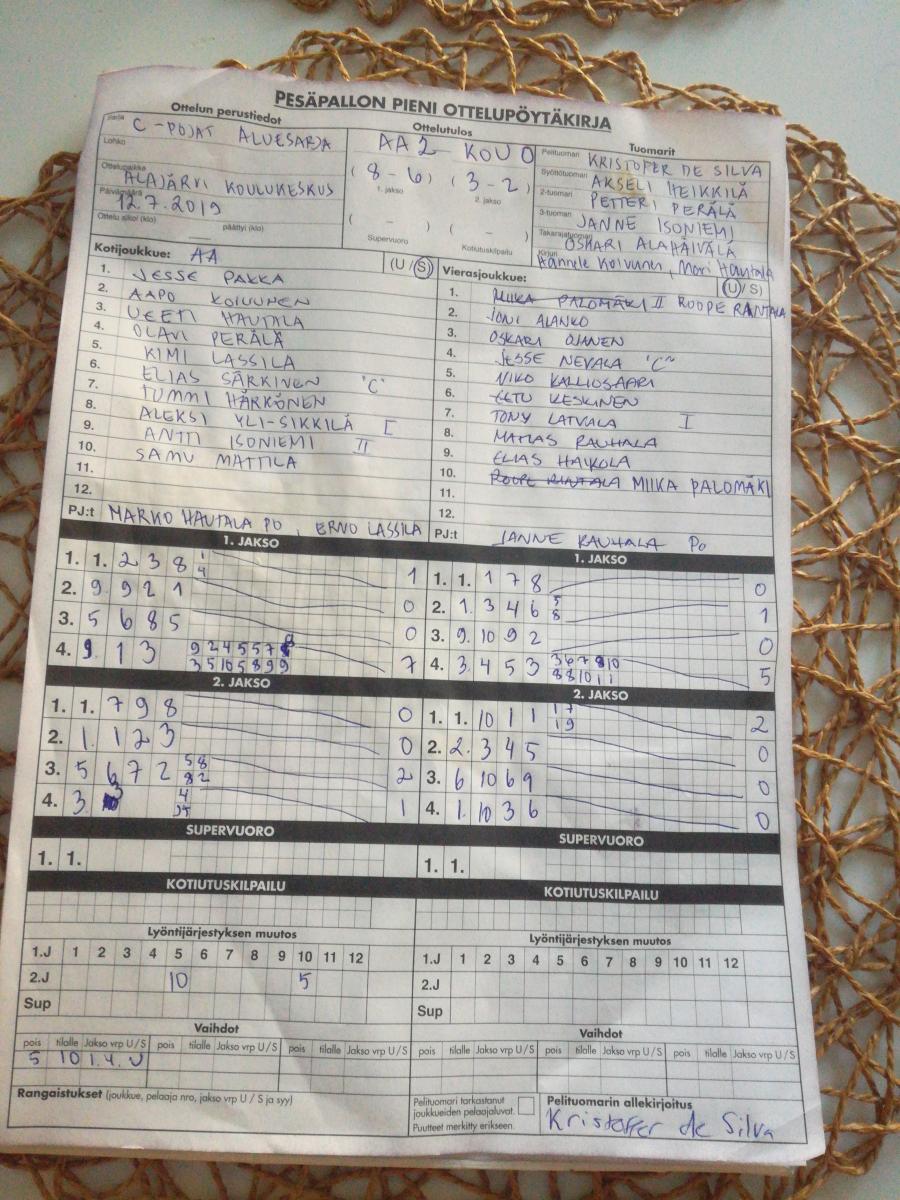 PESÄPALLON PIENI OTTELUPÖYTÄKIRJA
Ottelun perustiedot
Ottelutulos
Tuomarit
Sarja
C-POJAT ALUESARJA
Lohko
Ottelupaikka
ALAJÄRVI KOULUKESKUS
Päivämäärä
12.7.2019
Ottelu alkoi (klo) päättyi (klo)
AA 2 - KOU 0
(8 - 6) (3 - 2)
1. jakso 2. jakso
( - ) ( - )
Supervuoro Kotiutuskilpailu
Pelituomari KRISTOFER DE SILVA
Syöttötuomari AKSELI HEIKKILÄ
2-tuomari PETTERI PERÄLÄ
3-tuomari JANNE ISONIEMI
Takarajatuomari OSKARI ALAHÄIVÄLÄ
Kirjuri Hannele Koivunen, Mari Hautala
Kotijoukkue: AA (U/S)
1. JESSE PAKKA
2. AAPO KOIVUNEN
3. VEETI HAUTALA
4. OLAVI PERÄLÄ
5. KIMI LASSILA
6. ELIAS SÄRKINEN "C"
7. TUMMI HÄRKÖNEN
8. ALEKSI YLI-SIKKILÄ I
9. ANTTI ISONIEMI II
10. SAMU MATTILA
11.
12.
PJ:t MARKO HAUTALA PO, ERNO LASSILA
Vierasjoukkue: (U/S)
1. MIIKA PALOMÄKI II ROOPE RANTALA
2. JONI ALANKO
3. OSKARI OJANEN
4. JESSE NEVALA "C"
5. NIKO KALLIOSAARI
6. EETU KESKINEN
7. TONY LATVALA I
8. MATIAS RAUHALA
9. ELIAS HAUKOLA
10. ROOPE RANTALA MIIKA PALOMÄKI
11.
12.
PJ:t JANNE RAUHALA PO
1. JAKSO
1. 1. 2 3 8 1 4 1
2. 9. 9 2 1 0
3. 5 6 8 5 0
4. 9. 1 3 9 2 4 5 5 7 3 5 10 5 8 9 9 7
1. JAKSO
1. 1. 1 7 8 0
2. 1. 3 4 6 5 8 1
3. 9. 10 9 2 0
4. 3. 4 5 3 3 6 7 8 10 8 8 10 1 1 5
2. JAKSO
1. 1. 7 9 8 0
2. 1. 1 2 3 0
3. 5 6 7 2 5 8 8 2 2
4. 3. 3 4 1
2. JAKSO
1. 1. 10 1 1 1 7 1 9 2
2. 2. 3 4 5 0
3. 6 10 6 9 0
4. 1. 10 3 6 0
SUPERVUORO
1. 1.
SUPERVUORO
1. 1.
KOTIUTUSKILPAILU
KOTIUTUSKILPAILU
Lyöntijärjestyksen muutos
1.J 1 2 3 4 5 6 7 8 9 10 11 12
2.J 10 5
Sup
Lyöntijärjestyksen muutos
1.J 1 2 3 4 5 6 7 8 9 10 11 12
2.J
Sup
Vaihdot
pois tilalle Jakso vrp U/S pois tilalle Jakso vrp U/S pois tilalle Jakso vrp U/S
5 10 1.4. U
Vaihdot
pois tilalle Jakso vrp U/S pois tilalle Jakso vrp U/S pois tilalle Jakso vrp U/S
Rangaistukset (joukkue, pelaaja nro, jakso vrp U / S ja syy)
Pelituomari tarkastanut
joukkueiden pelaajaluvat.
Puutteet merkitty erikseen.
Pelituomarin allekirjoitus
Kristoffer de Silva